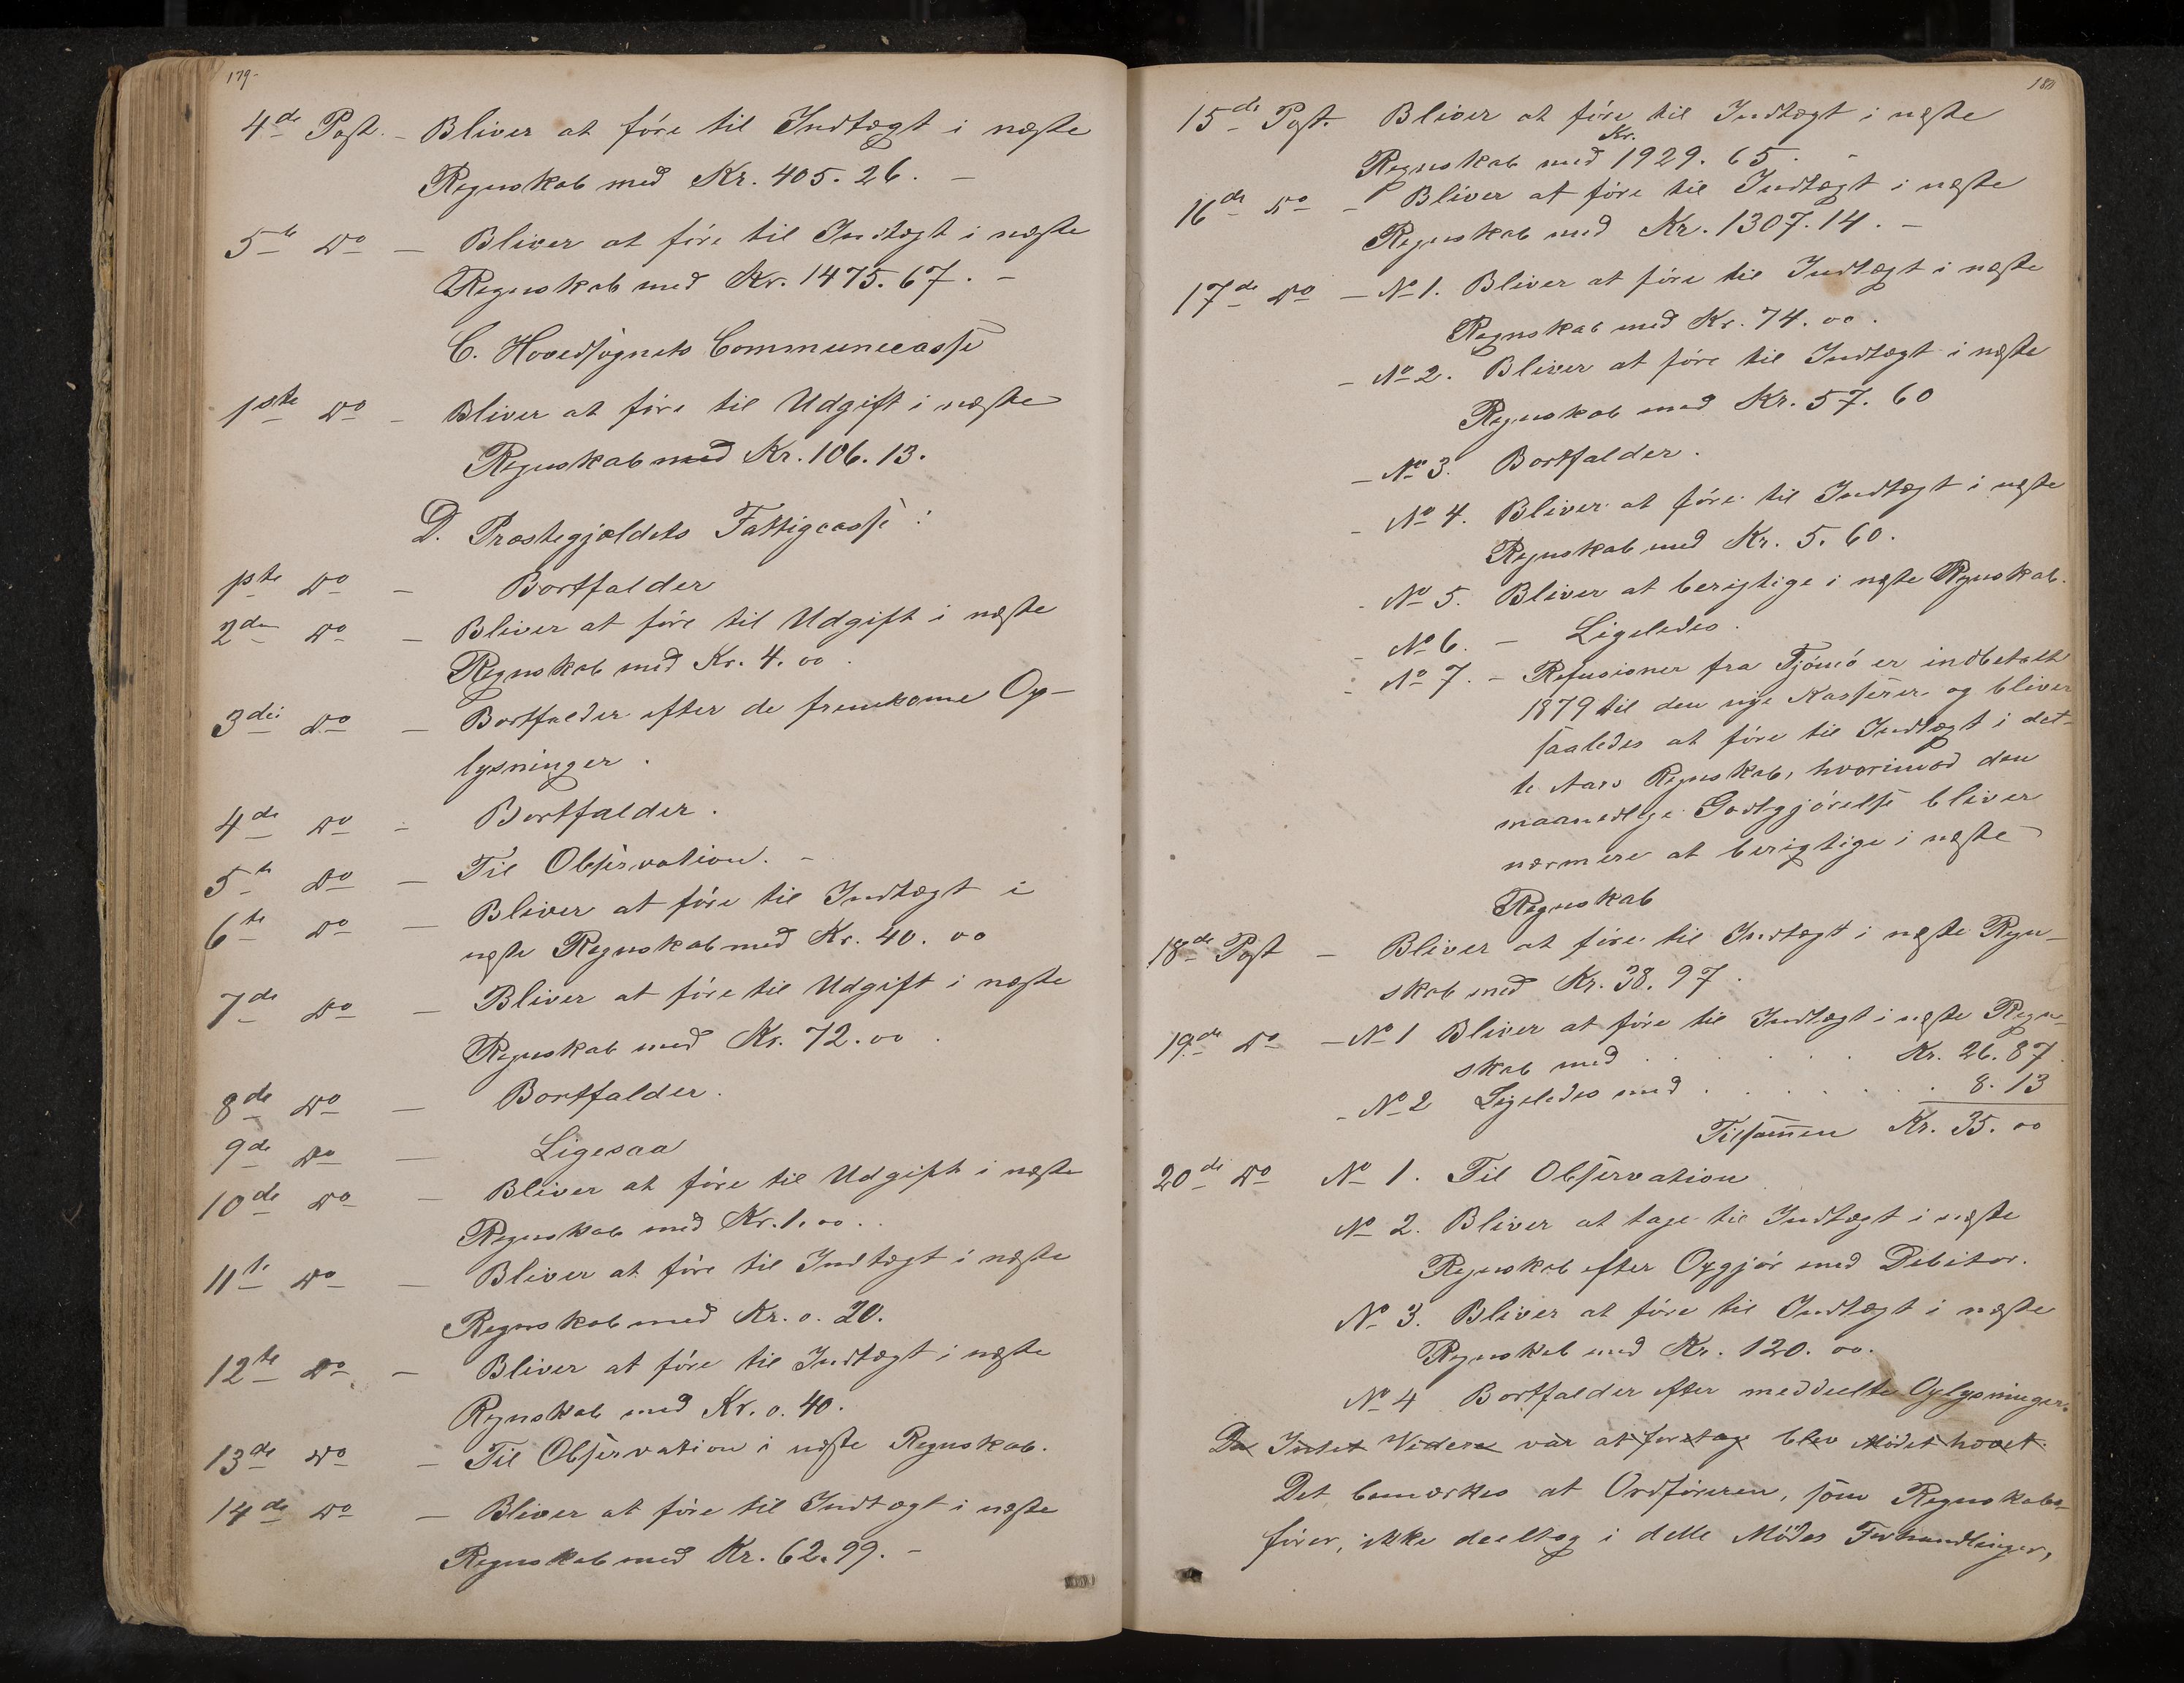 179-
4de Post. - Bliver at føre til Indtægt i næste
Regnskab med Kr. 405.26. -
5te Do - Bliver at føre til Indtægt i næste
Regnskab med Kr. 1475.67. -
C. Hovedsognets Communecasse
1ste Do - Bliver at føre til Udgift i næste
Regnskab med Kr. 106.13.
D. Præstegjældets Fattigcasse:
1ste Do - Bortfalder
2den Do - Bliver at føre til Udgift i næste
Regnskab med Kr. 4.00.
3die Do - Bortfalder efter de fremkomne Op-
lysninger.
4de Do - Bortfalder.
5te Do - Til Observation. -
6te Do - Bliver at føre til Indtægt i
næste Regnskab med Kr. 40.00
7de Do - Bliver at føre til Udgift i næste
Regnskab med Kr. 72.00.
8de Do - Bortfalder.
9de Do - Ligesaa
10de Do - Bliver at føre til Udgift i næste
Regnskab med Kr. 1.00..
11te Do - Bliver at føre til Indtægt i næste
Regnskab med Kr. 0.20.
12te Do - Bliver at føre til Indtægt i næste
Regnskab med Kr. 0.40.
13de Do - Til Observation i næste Regnskab.
14de Do - Bliver at føre til Indtægt i næste
Regnskab med Kr. 62.99. -
180
15de Post. Bliver at føre til Indtægt i næste
Regnskab med Kr. 1929.65. -
16de Do - Bliver at føre til Indtægt i næste
Regnskab med Kr. 1307.14. -
17de Do - No 1. Bliver at føre til Indtægt i næste
Regnskab med Kr. 74.00.
- No 2. Bliver at føre til Indtægt i næste
Regnskab med Kr. 57.60
- No 3. Bortfalder.
- No 4. Bliver at føre til Indtægt i næste
Regnskab med Kr. 5.60.
- No 5. Bliver at berigtige i næste Regnskab.
- No 6. - Ligeledes.
- No 7. - Refusioner fra Tjømø er indbetalt
1879 til den nye Kasserer og bliver
saaledes at føre til Indtægt i det-
te Aars Regnskab, hvorimod den
maanedlige Godtgjørelse bliver
nærmere at berigtige i næste
Regnskab
18de Post - Bliver at føre til Indtægt i næste Regn-
skab med Kr. 38.97.
19de Do - No 1 Bliver at føre til Indtægt i næste Regn-
skab med . . . . . . Kr. 26.87.
- No 2 Ligeledes med . . . . . . . 8.13
Tilsammen Kr. 35.00
20de Do No 1. Til Observation
No 2. Bliver at tage til Indtægt i næste
Regnskab efter Opgjør med Debitor.
No 3. Bliver at føre til Indtægt i næste
Regnskab med Kr. 120.00.
No 4 Bortfalder efter meddeelte Oplysninger.
Da Intet Videre var at foretage blev Mødet hævet.
Det bemærkes at Ordføreren, som Regnskabs-
fører, ikke deeltog i dette Mødes Forhandlinger,